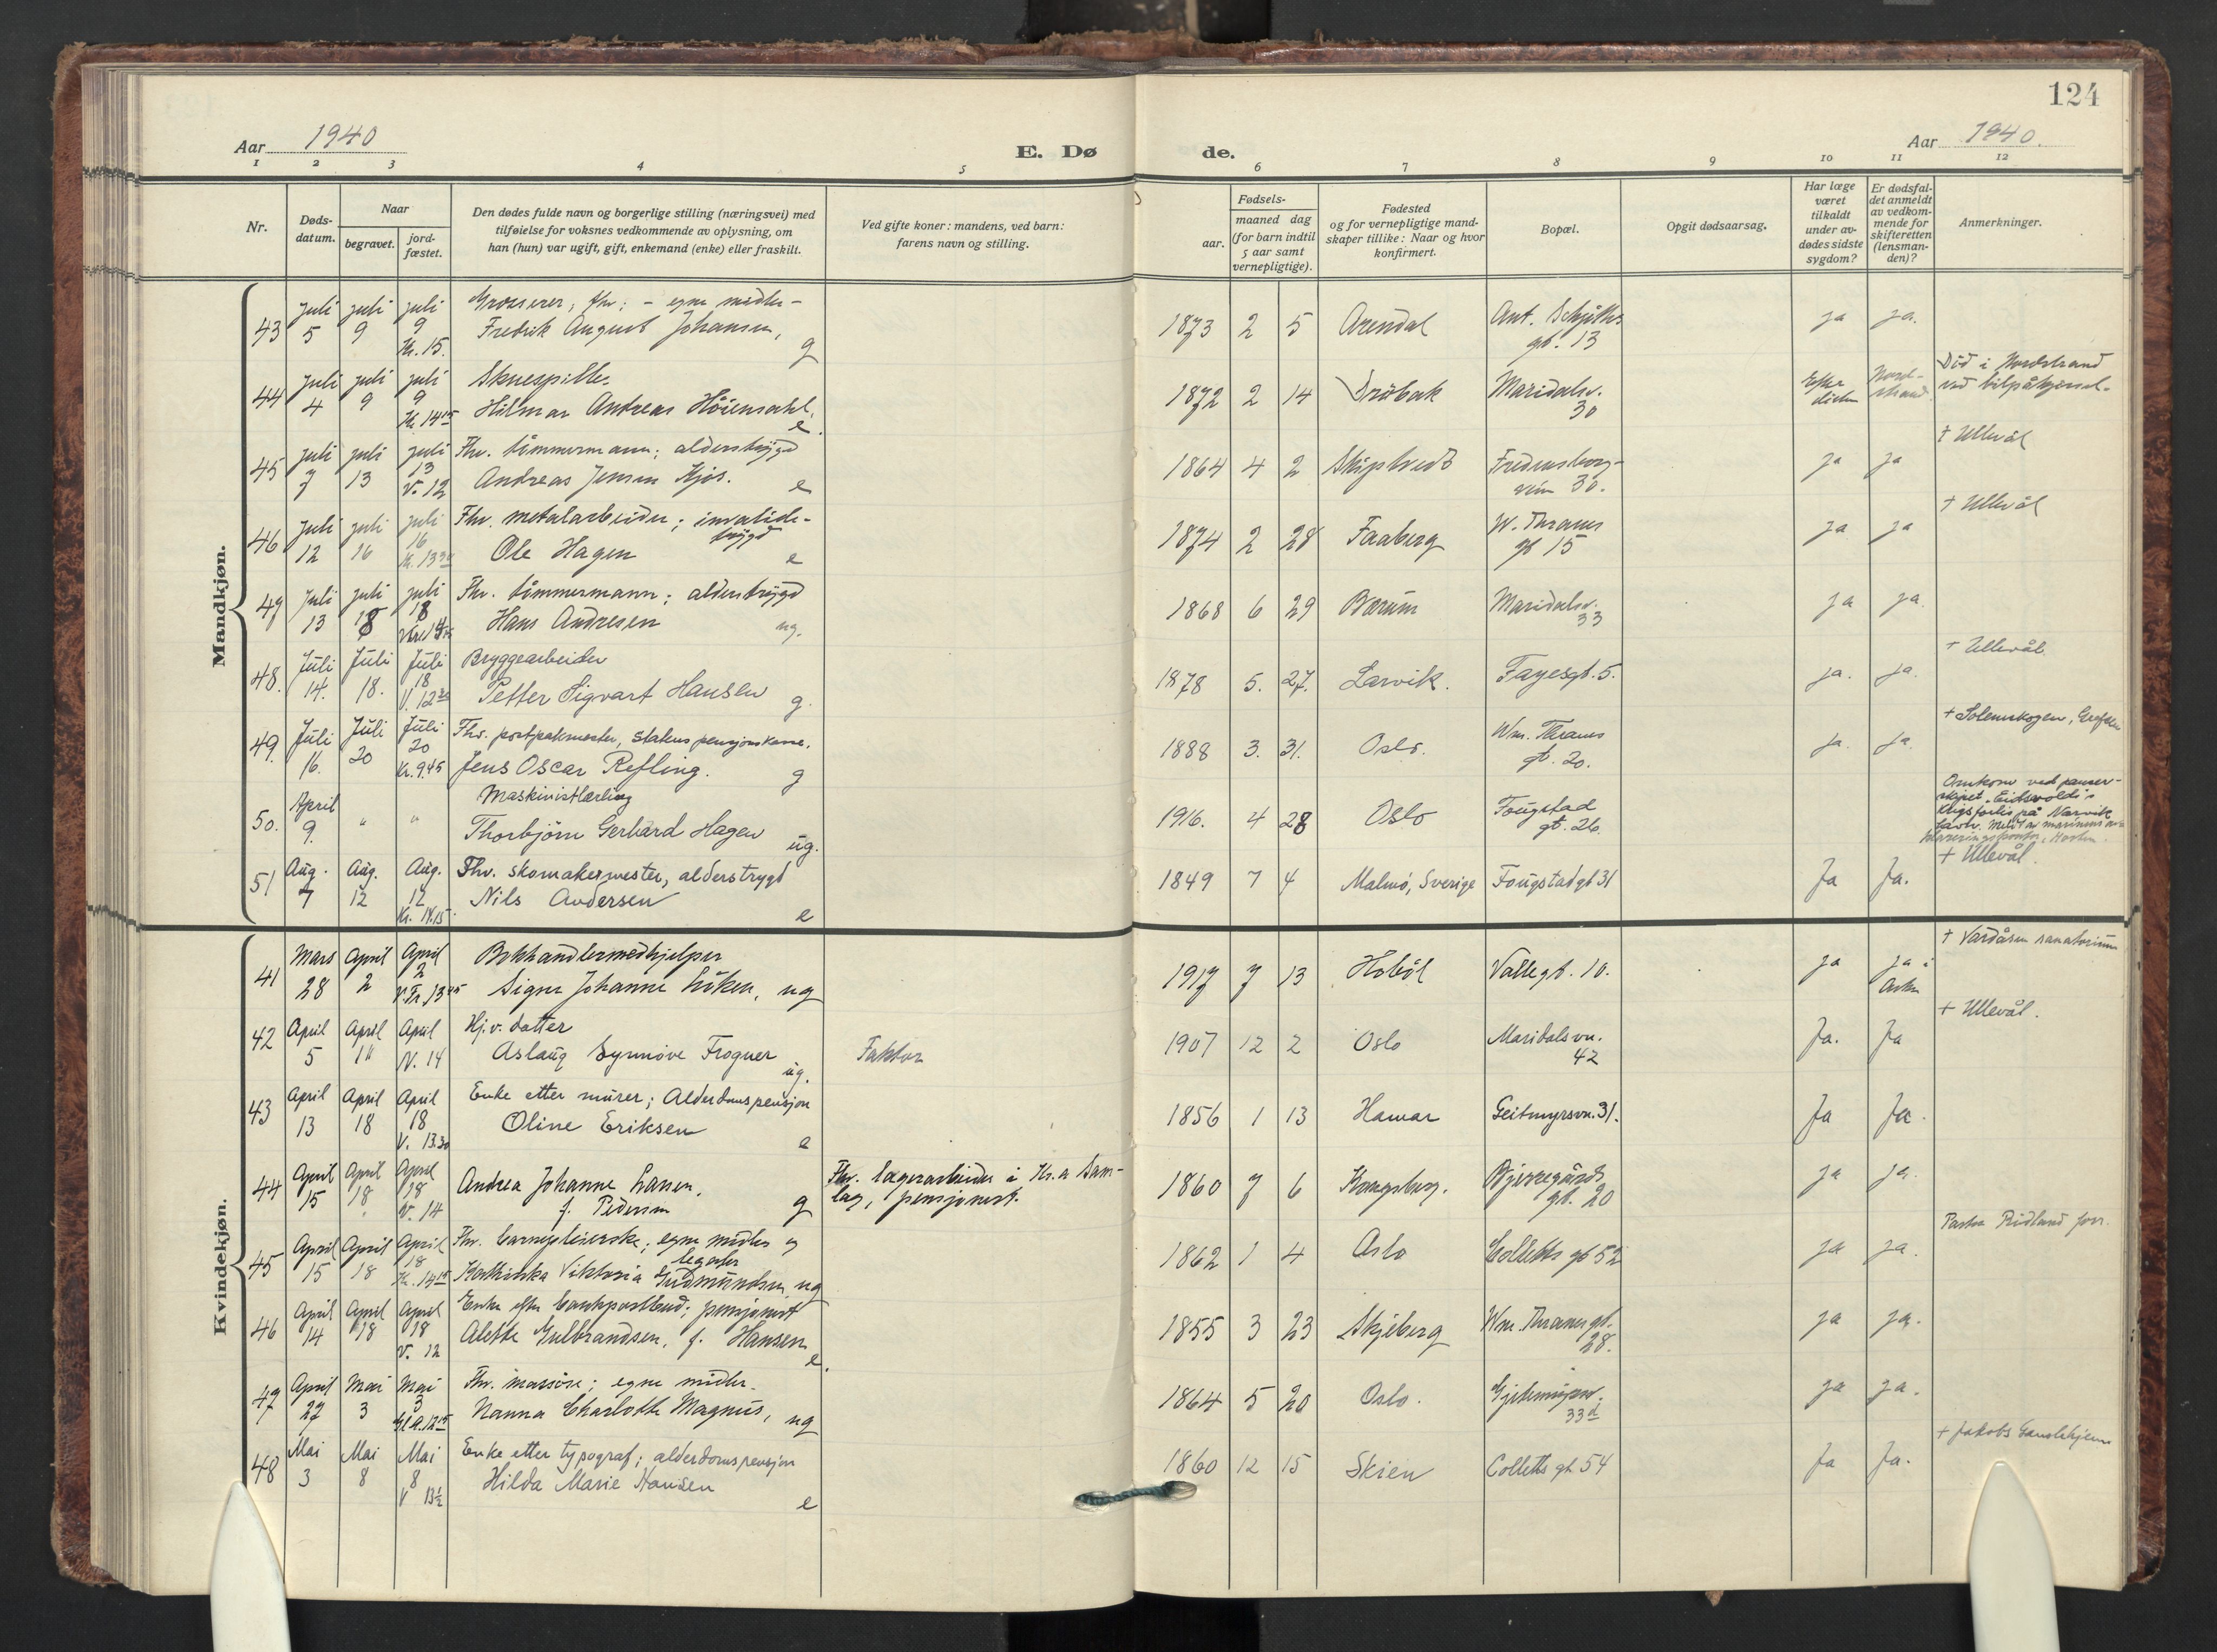 124
Aar 1940
E. Dø
de.
Aar 1940.
1 2 3 4 5 6 7 8 9 10 11 12
Nr.
Døds-
datum.
Naar
begravet.
jord-
fæstet.
Den dødes fulde navn og borgerlige stilling (næringsvei) med
tilføielse for voksnes vedkommende av oplysning, om
han (hun) var ugift, gift, enkemand (enke) eller fraskilt.
Ved gifte koner: mandens, ved barn:
farens navn og stilling.
Fødsels-
aar.
maaned dag
(for barn indtil
5 aar samt
vernepligtige).
Fødested
og for vernepligtige mand-
skaper tillike: Naar og hvor
konfirmert.
Bopæl.
Opgit dødsaarsag.
Har læge
været
tilkaldt
under av-
dødes sidste
sygdom?
Er dødsfal-
det anmeldt
av vedkom-
mende for
skifteretten
(lensman-
den)?
Anmerkninger.
Mandkjøn.
43 Juli 5 juli 9 juli 9 Kr. 15.
Grosserer, fhv; - egne midler-
Fredrik August Johansen, g
1873 2 5 Arendal Ant. Schjøths gt. 13 ja ja.
44 Juli 4 juli 9 juli 9 Kr. 14 15
Skuespiller
Hilmar Andreas Höiensahl. e.
1872 2 14 Drøbak Maridalsv. 30 Efter døden Nord-strand
Död i Nordstrand
ved bilpåkjørsel.
45 juli 7 juli 13 juli 13 V. 12
Fhv. tömmermann; alderstrygd
Andreas Jensen Kjos. e
1864 4 2 Skiptvedt Fredensborg-veien 30. ja ja
† Ullevål
46 Juli 12 juli 16 juli 16 Kr. 13 30
Fhv. metalarbeider; invalide-
trygd
Ole Hagen e
1874 2 28 Faaberg W. Thranes gt 15 ja ja
† Ullevål
47 Juli 13 juli 18 juli 18
Fhv. tömmermann; alderstrygd
Hans Andresen ug.
1868 6 29 Bærum Maridalsv. 33 ja ja.
48. Juli 14. Juli 18. Juli 18 V. 12 30
Bryggearbeider
Petter Sigvart Hansen g.
1878 5. 27. Larvik. Fayesgt. 5. ja. ja.
† Ullevål.
49. Juli 16. Juli 20 Juli 20 Kr. 9.45
Fhv. postpakmester, Statens pensjonskasse.
Jens Oscar Refling. g
1888 3. 31. Oslo. Wm. Thranes gt. 20. ja. ja.
† Solemskogen, Grefsen
50. April 9. " "
Maskinistlærling
Thorbjörn Gerhard Hagen ug.
1916. 4 28 Oslo Fougstad gt. 26.
Omkom ved panser-
skipet "Eidsvold"s
krigsforlis på Narvik
havn.
51 Aug. 7 Aug. 12 Aug. 12 Kr. 14.15
Fhv. skomakermester, alderstrygd
Nils Andersen e
1849 7 4 Malmö, Sverige Fougstadgt 31 Ja Ja.
† Ullevål.
Kvindekjøn.
41 Mars 28 April 2 April 2 V. Fr. 13 45
Bokhandlermedhjelper
Signe Johanne Löken, ug
1917 7 13 Hobøl Vallegt. 10. ja ja i Asker
† Vardåsen sanatorium
42 April 5 April 11 April N. 14
Hj.v. datter
Aslaug Synnöve Frogner ug. Faktor
1907 12 2 Oslo Maridalsvn. 42 Ja. Ja
† Ullevål.
43 April 13 April 18 April 18 V. 13.30
Enke etter murer; Alderdomspensjon
Oline Eriksen e
1856 1 13 Hamar Geitmyrsvn. 31. Ja Ja.
44 April 15 April 18 April 18 V. 14
Andrea Johanne Larsen,
f. Pedersen g
Fhv. lagerarbeider i Kr.a Sam-
lag, pensjonist.
1860 7 6 Kongsberg. Bjerregårds gt. 20 ja ja.
45 April 15 April 18 April 18 Kr. 14 15
Fhv. barnepleierske; egne midler og
legater
Kathinka Viktoria Gudmundsen, ug
1862 1 4 Oslo Colletts gt 52 ja ja.
Pastor Ridland forr.
46 April 14 April 18 April 18 V. 12
Enke efter bankpostbud; pensjonist
Alette Gulbrandsen, f. Hansen e.
1855 3 23 Skjeberg Wm. Thranes gt. 28. ja ja.
47 April 27 Mai 3 Mai 3
Fhv. massøse; egne midler.
Nanna Charlotte Magnus, ug
1864 5 20 Oslo. Gjetemyrsv. 33 d ja ja.
48 Mai 3 Mai 8 Mai 8 V 13½
Enke etter typograf; alderdomspensjon
Hilda Marie Hansen e
1860 12 15 Skien Colletts gt. 54 Ja Ja.
† Jakobs Gamlehjem